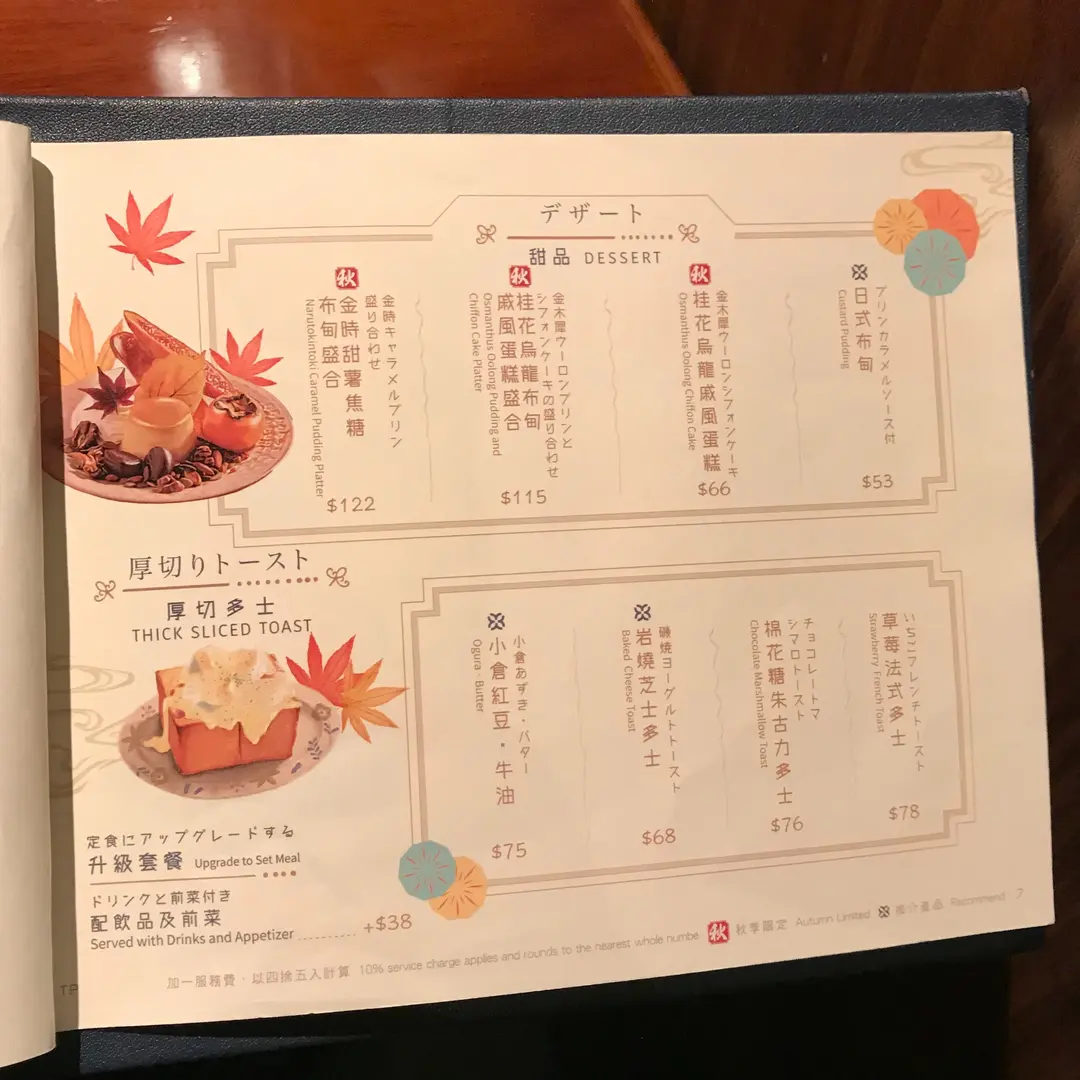 デザート
甜品 DESSERT
秋
金時キャラメルプリン
盛り合わせ
金時甜薯焦糖
布甸盛合
Narutokintoki Caramel Pudding Platter
$122
秋
金木犀ウーロンプリンと
シフォンケーキの盛り合わせ
桂花烏龍布甸
戚風蛋糕盛合
Osmanthus Oolong Pudding and
Chiffon Cake Platter
$115
秋
金木犀ウーロンシフォンケーキ
桂花烏龍戚風蛋糕
Osmanthus Oolong Chiffon Cake
$66
プリンカラメルソース付
日式布甸
Custard Pudding
$53
厚切りトースト
厚切多士
THICK SLICED TOAST
小倉あずき・バター
小倉紅豆・牛油
Ogura · Butter
$75
磯焼ヨーグルトトースト
岩燒芝士多士
Baked Cheese Toast
$68
チョコレートマ
シマロトースト
棉花糖朱古力多士
Chocolate Marshmallow Toast
$76
いちごフレンチトースト
草莓法式多士
Strawberry French Toast
$78
定食にアップグレードする
升級套餐 Upgrade to Set Meal
ドリンクと前菜付き
配飲品及前菜
Served with Drinks and Appetizer
+$38
加一服務費，以四捨五入計算 10% service charge applies and rounds to the nearest whole numbe
秋 秋季限定 Autumn Limited 推介產品 Recommend 7
TP